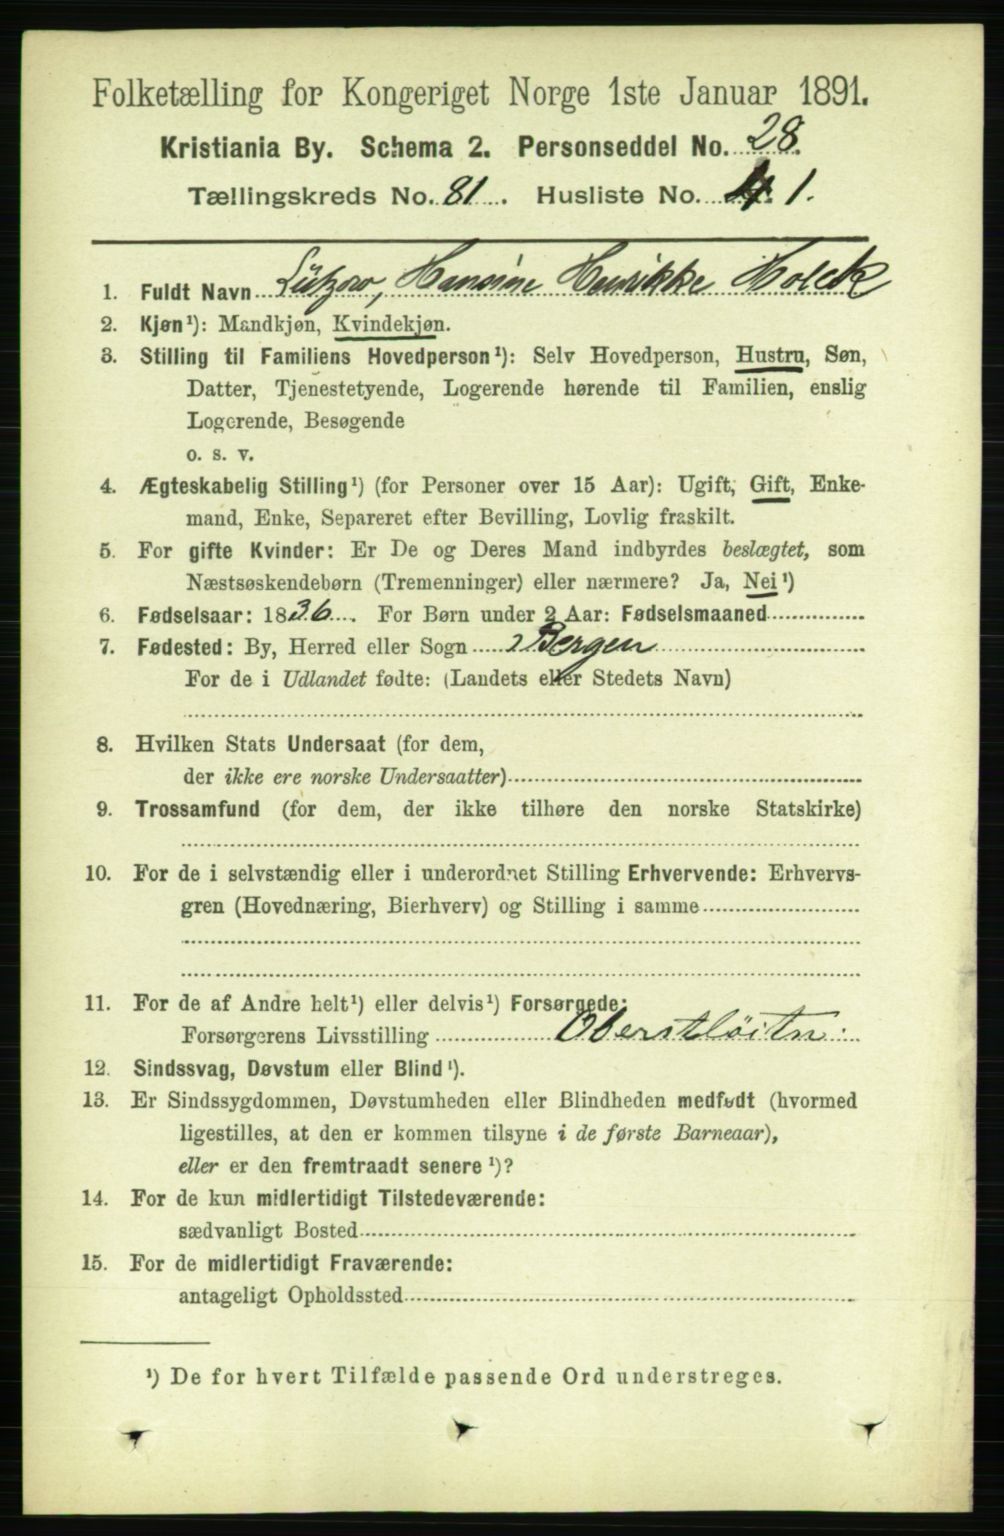 Folketælling for Kongeriget Norge 1ste Januar 1891.
Kristiania By. Schema 2. Personseddel No. 28.
Tællingskreds No. 81. Husliste No. 1.
1. Fuldt Navn Lützow, Hansine Henrikke Holck
2. Kjøn¹): Mandkjøn, Kvindekjøn.
3. Stilling til Familiens Hovedperson¹): Selv Hovedperson, Hustru, Søn,
Datter, Tjenestetyende, Logerende hørende til Familien, enslig
Logerende, Besøgende
o. s. v.
4. Ægteskabelig Stilling¹) (for Personer over 15 Aar): Ugift, Gift, Enke-
mand, Enke, Separeret efter Bevilling, Lovlig fraskilt.
5. For gifte Kvinder: Er De og Deres Mand indbyrdes beslægtet, som
Næstsøskendebørn (Tremenninger) eller nærmere? Ja, Nei¹)
6. Fødselsaar: 1836. For Børn under 2 Aar: Fødselsmaaned
7. Fødested: By, Herred eller Sogn Bergen
For de i Udlandet fødte: (Landets eller Stedets Navn)
8. Hvilken Stats Undersaat (for dem,
der ikke ere norske Undersaatter)
9. Trossamfund (for dem, der ikke tilhøre den norske Statskirke)
10. For de i selvstændig eller i underordnet Stilling Erhvervende: Erhvervs-
gren (Hovednæring, Bierhverv) og Stilling i samme
11. For de af Andre helt¹) eller delvis¹) Forsørgede:
Forsørgerens Livsstilling Oberstløitn.
12. Sindssvag, Døvstum eller Blind¹).
13. Er Sindssygdommen, Døvstumheden eller Blindheden medfødt (hvormed
ligestilles, at den er kommen tilsyne i de første Barneaar),
eller er den fremtraadt senere¹)?
14. For de kun midlertidigt Tilstedeværende:
sædvanligt Bosted
15. For de midlertidigt Fraværende:
antageligt Opholdssted
¹) De for hvert Tilfælde passende Ord understreges.